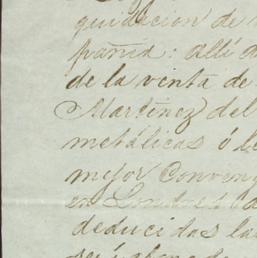 quidacion de
pañia: allí
de la venta de
Martinez del
metálicas ó
mejor Conven
en Londres
deducidas la